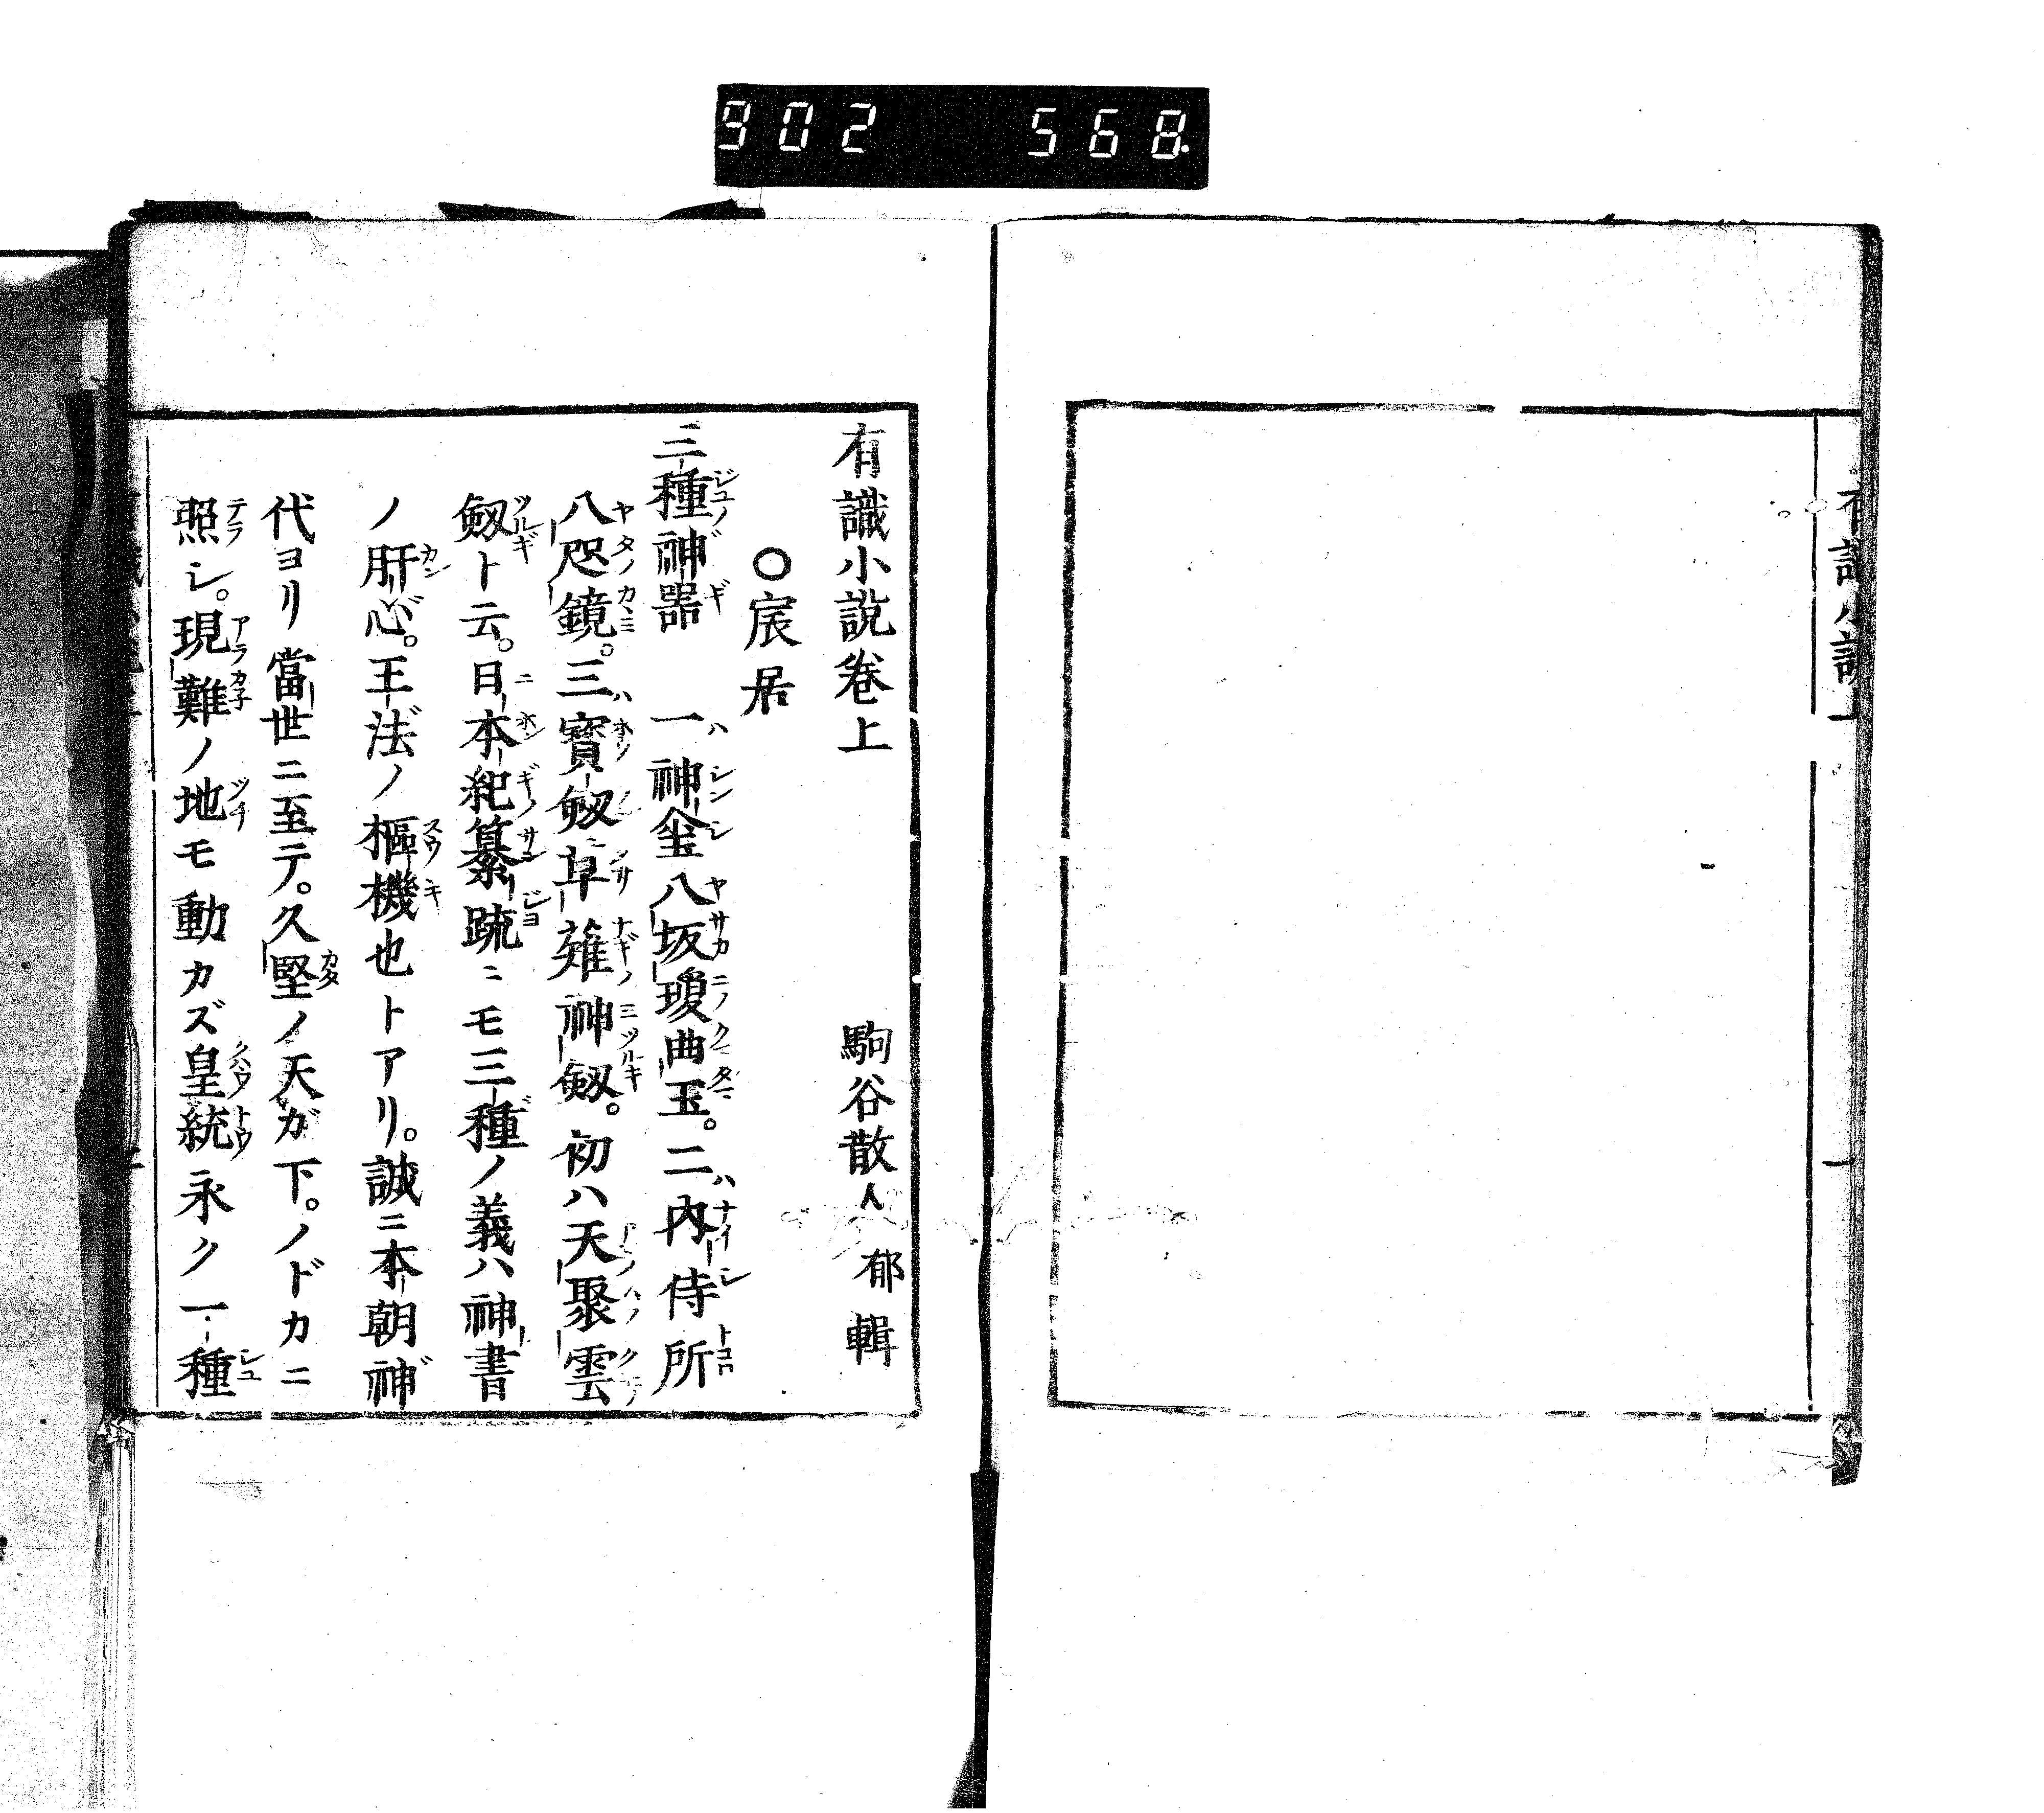 902 568
有識小說卷上 駒谷散人 郁 輯
○宸居
三種神器 一ハ神璽八坂瓊曲玉。二ハ内侍所
八咫鏡。三ハ寶劔草薙神劔。初ハ天聚雲
劔ト云。日本紀纂疏ニモ三種ノ義ハ神書
ノ肝心。王法ノ樞機也トアリ。誠ニ本朝神
代ヨリ當世ニ至テ。久堅ノ天ガ下。ノドカニ
照シ。現難ノ地モ動カズ皇統永ク一種